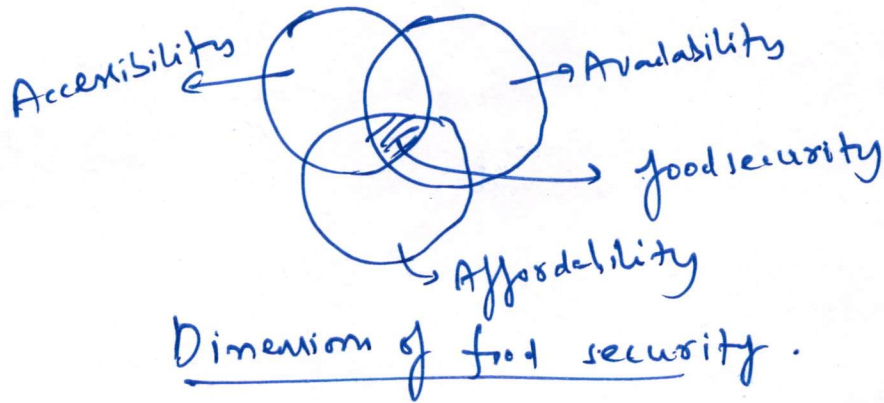 Accessibility
Availability
food security
Affordability
Dimension of food security.